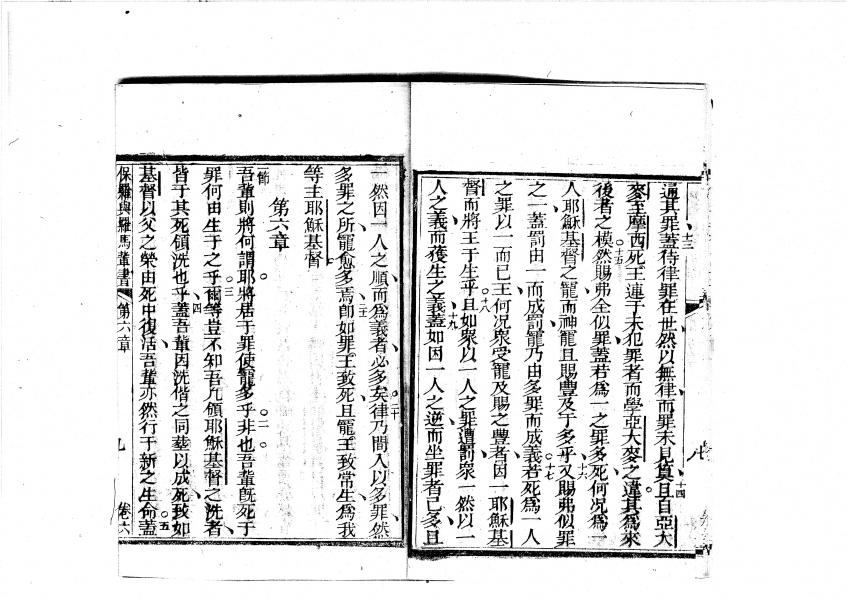 十三
通其罪蓋待律罪在世然以無律而罪未見算且自亞大
十四
麥至摩西死王連于未犯罪者而學亞大麥之違其為來
後者之模然賜弗全似罪蓋若為一之罪多死何況為一
十五
人耶穌基督之寵而神寵且賜豊及于多乎又賜弗似罪
十六
之一蓋罰由一而成罰寵乃由多罪而成義若死為一人
十七
之罪以一而已王何况眾受寵及賜之豐者因一耶穌基
督而將王于生乎且如眾以一人之罪遭罰眾一然以一
十八
人之義而獲生之義蓋如因一人之逆而坐罪者已多且
十九
一然因一人之順而為義者必多矣律乃間入以多罪然
二十
多罪之所寵愈多焉卽如罪王致死且寵王致常生為我
二一
等主耶穌基督
第六章
節
吾輩則將何謂耶將居于罪使寵多乎非也吾輩旣死于
二
罪何由生于之乎爾等豈不知吾凢領耶穌基督之洗者
三
皆于其死領洗也乎蓋吾輩因洗偕之同塟以成死致如
四
基督以父之榮由死中復活吾輩亦然行于新之生命蓋
五
保羅與羅馬輩書 第六章 九 卷六